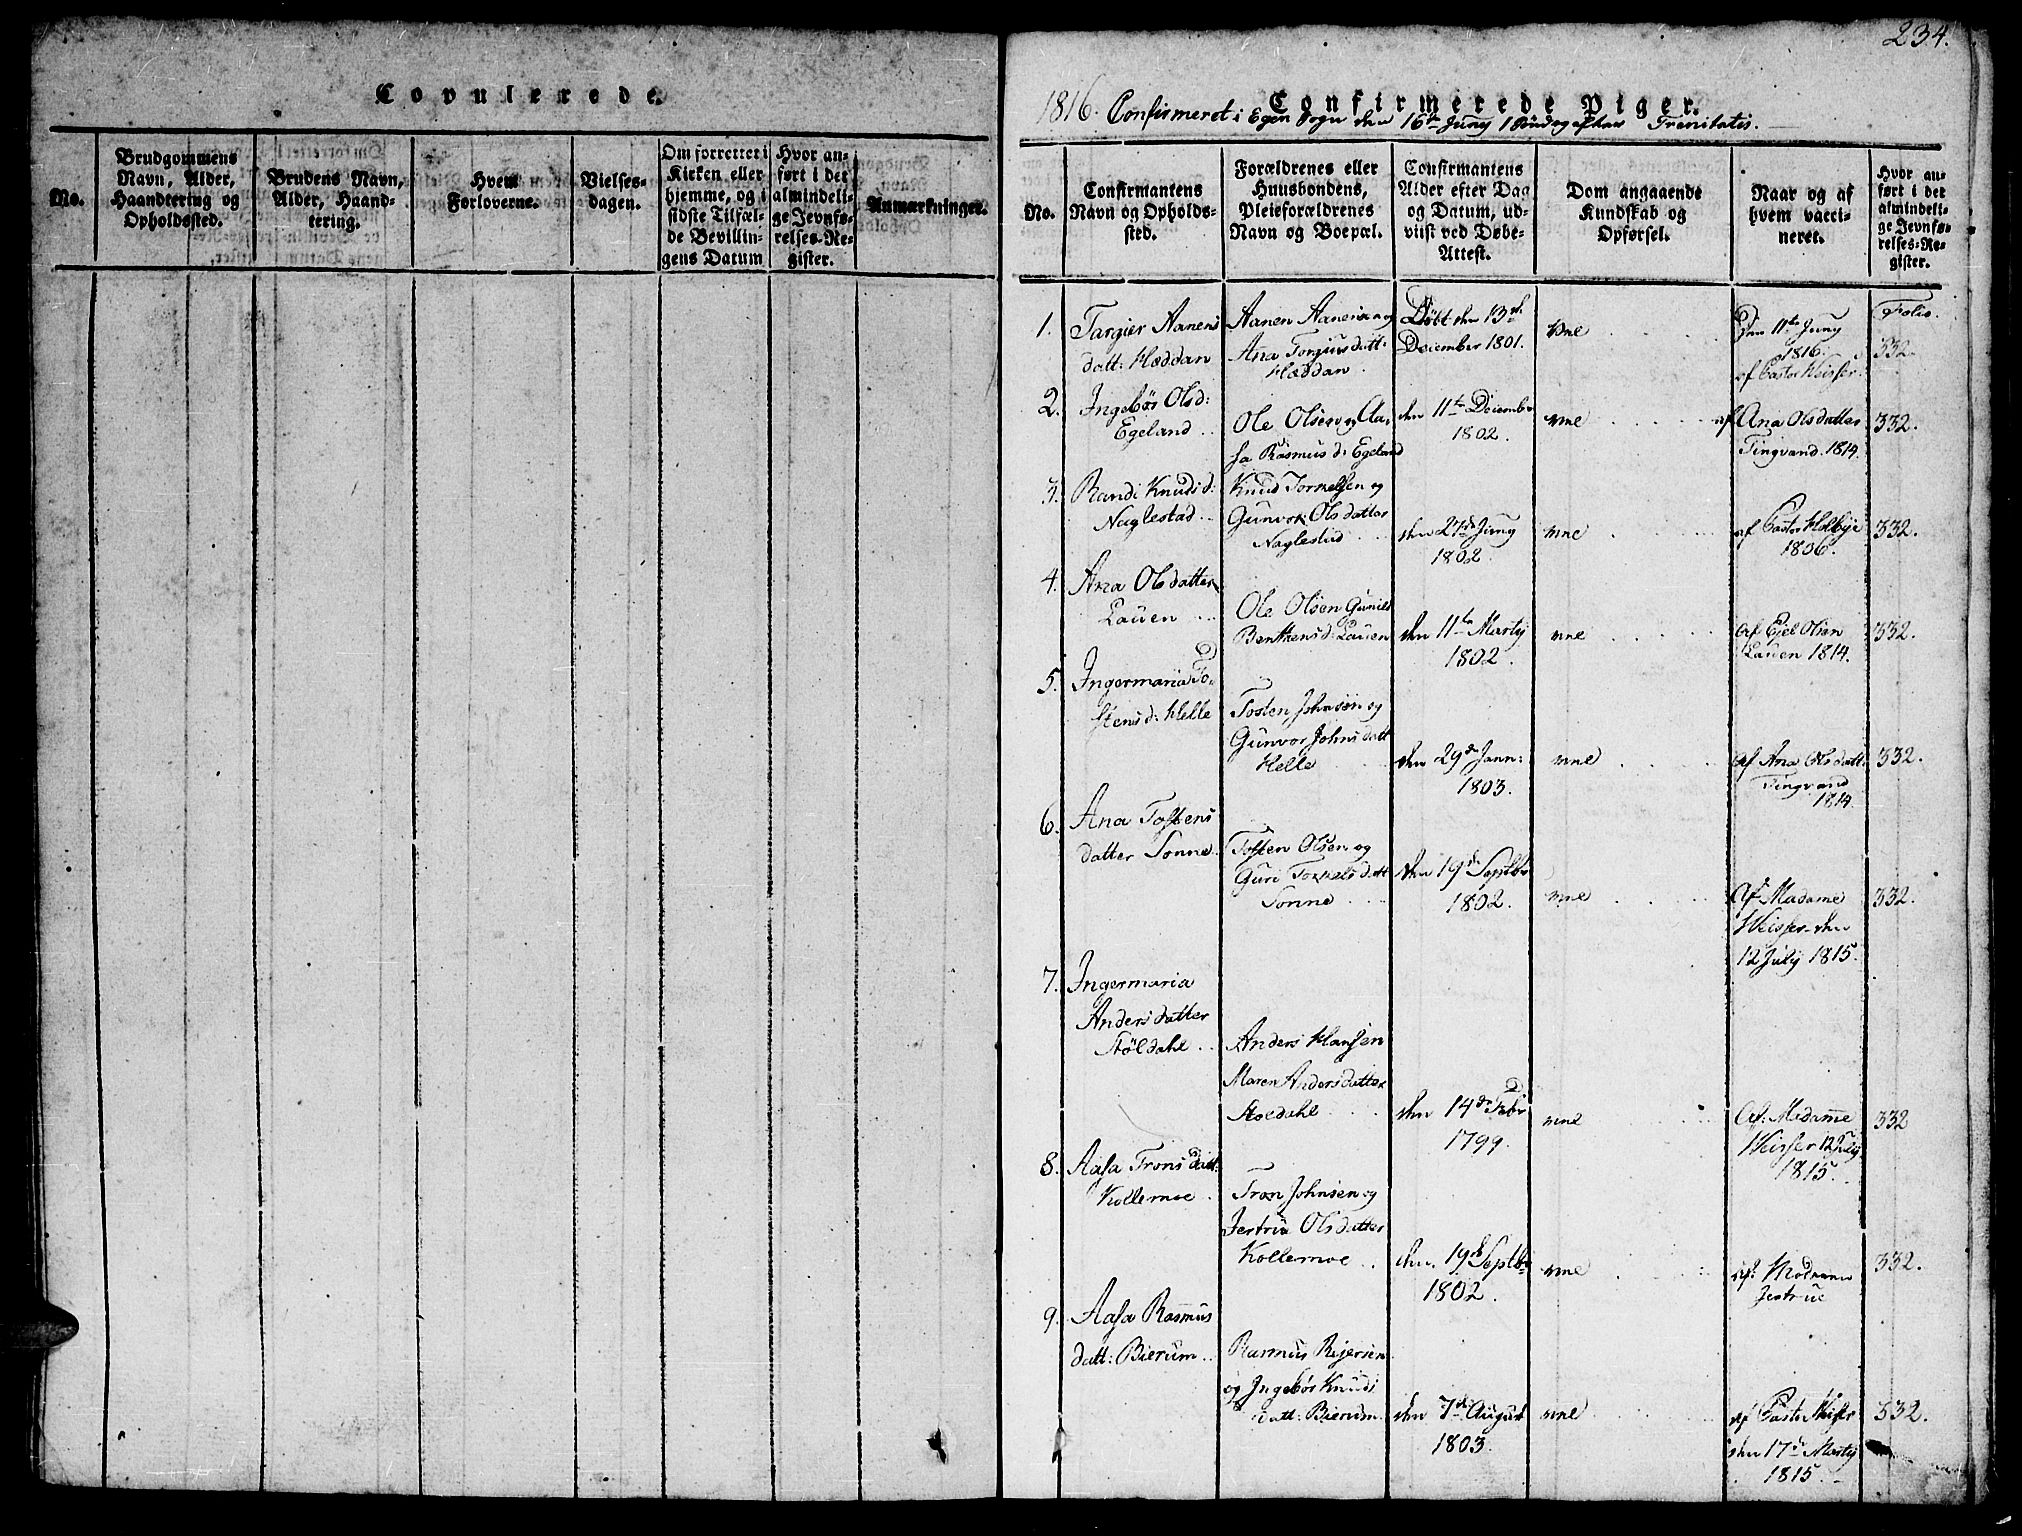 Copulerede.
No.
Brudgommens
Navn, Alder,
Haandtering og
Opholdssted.
Brudens Navn,
Alder, Haand-
tering.
Hvem
Forloverne.
Vielses-
dagen.
Om forrettet i
Kirken eller
hjemme, og i
sidste Tilfæl-
de Bevillin-
gens Datum
Hvor an-
ført i det
almindeli-
ge Jevnfø-
relses-Re-
gister.
Anmærkninger.
234.
Confirmerede Piger.
1816. Confirmeret i Egen Sogn den 16de Juny 1 Søndag efter Trinitatis.
No.
Confirmantens
Navn og Opholds-
sted.
Forældrenes eller
Huusbondens,
Pleieforældrenes
Navn og Boepæl.
Confirmantens
Alder efter Dag
og Datum, ud-
viist ved Døbe-
Attest.
Dom angaaende
Kundskab og
Opførsel.
Naar og af
hvem vacci-
neret.
Hvor an-
ført i det
almindeli-
ge Jevnfø-
relses-Re-
gister.
1. Targier Aanens
datt: Hæddan
Aanen Aanensen og
Ana Torgiusdatt:
Hæddan.
Døbt den 13de
December 1801.
Den 11te Juny
1816.
af Pastor Heisser.
Folio.
332.
2. Ingebør Olsd:
Egeland
Ole Olsen og Aa-
sa Rasmusd: Egeland
den 11te Decembr
1802.
af Ana Olsdatter
Tingvand. 1814.
332.
3. Randi Knudsd:
Naglestad
Knud Torkelsen og
Gunvor Olsdatter
Naglestad
den 27de Juny
1802.
af Pastor Holbye
1806.
332.
4. Ana Olsdatter
Lauen
Ole Olsen Gunild
Bentsensd: Lauen
den 11te Marty
1802.
af Ejel Olsen
Lauen 1814.
332.
5. Ingermaria To-
stensd: Helle
Tosten Johnsøn og
Gunvor Johnsdatt
Helle
den 29de Jann:
1803.
af Ana Olsdatt:
Tingvand
1814.
332.
6. Ana Tostens
datter Sonne
Tosten Olsen og
Guri Torkelsdatt
Sonne
den 19de Septbr
1802.
Af Madame
Heisser den
12 July 1815.
332.
7. Ingermaria
Andersdatter
Støldahl
Anders Hansen
Maren Andersdatter
Stoldahl
den 14de Febr
1799.
Af: Madamme
Heisser 12 July
1815.
332
8. Aasa Tronsdatt:
Kollemoe
Tron Johnsen og
Jertrue Olsdatter
Kollemoe
den 19de Septbr
1802.
af:
Jertrue
332.
9. Aasa Rasmus
datt: Bierum
Rasmus Rejersen
og Ingebør Knuds
datt: Bierum
den 7de August
1803.
af Pastor Heisser
den 17de Marty
1815.
332.